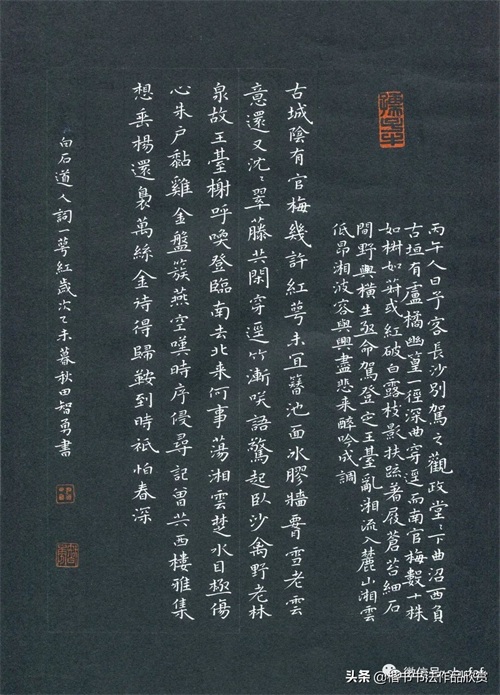 丙午人日予客長沙別駕之觀政堂〻下曲沼西負
古垣有盧橘幽篁一徑深曲穿逕而南官梅數十株
如椒如菽或紅破白露枝影扶疏著屐蒼苔細石
間野興橫生亟命駕登定王臺亂湘流入麓山湘雲
低昂湘波容與興盡悲來醉吟成調
古城陰有官梅幾許紅萼未宜簪池面冰膠牆腰雪老雲
意還又沈〻翠藤共閑穿逕竹漸咲語驚起臥沙禽野老林
泉故王臺榭呼喚登臨南去北來何事蕩湘雲楚水目極傷
心朱戶黏雞金盤簇燕空嘆時序侵尋記曾共西樓雅集
想垂楊還裊萬絲金待得歸鞍到時祇怕春深
白石道人詞一萼紅歲次乙未暮秋田智勇書
微信号
头条 @楷书书法作品欣赏